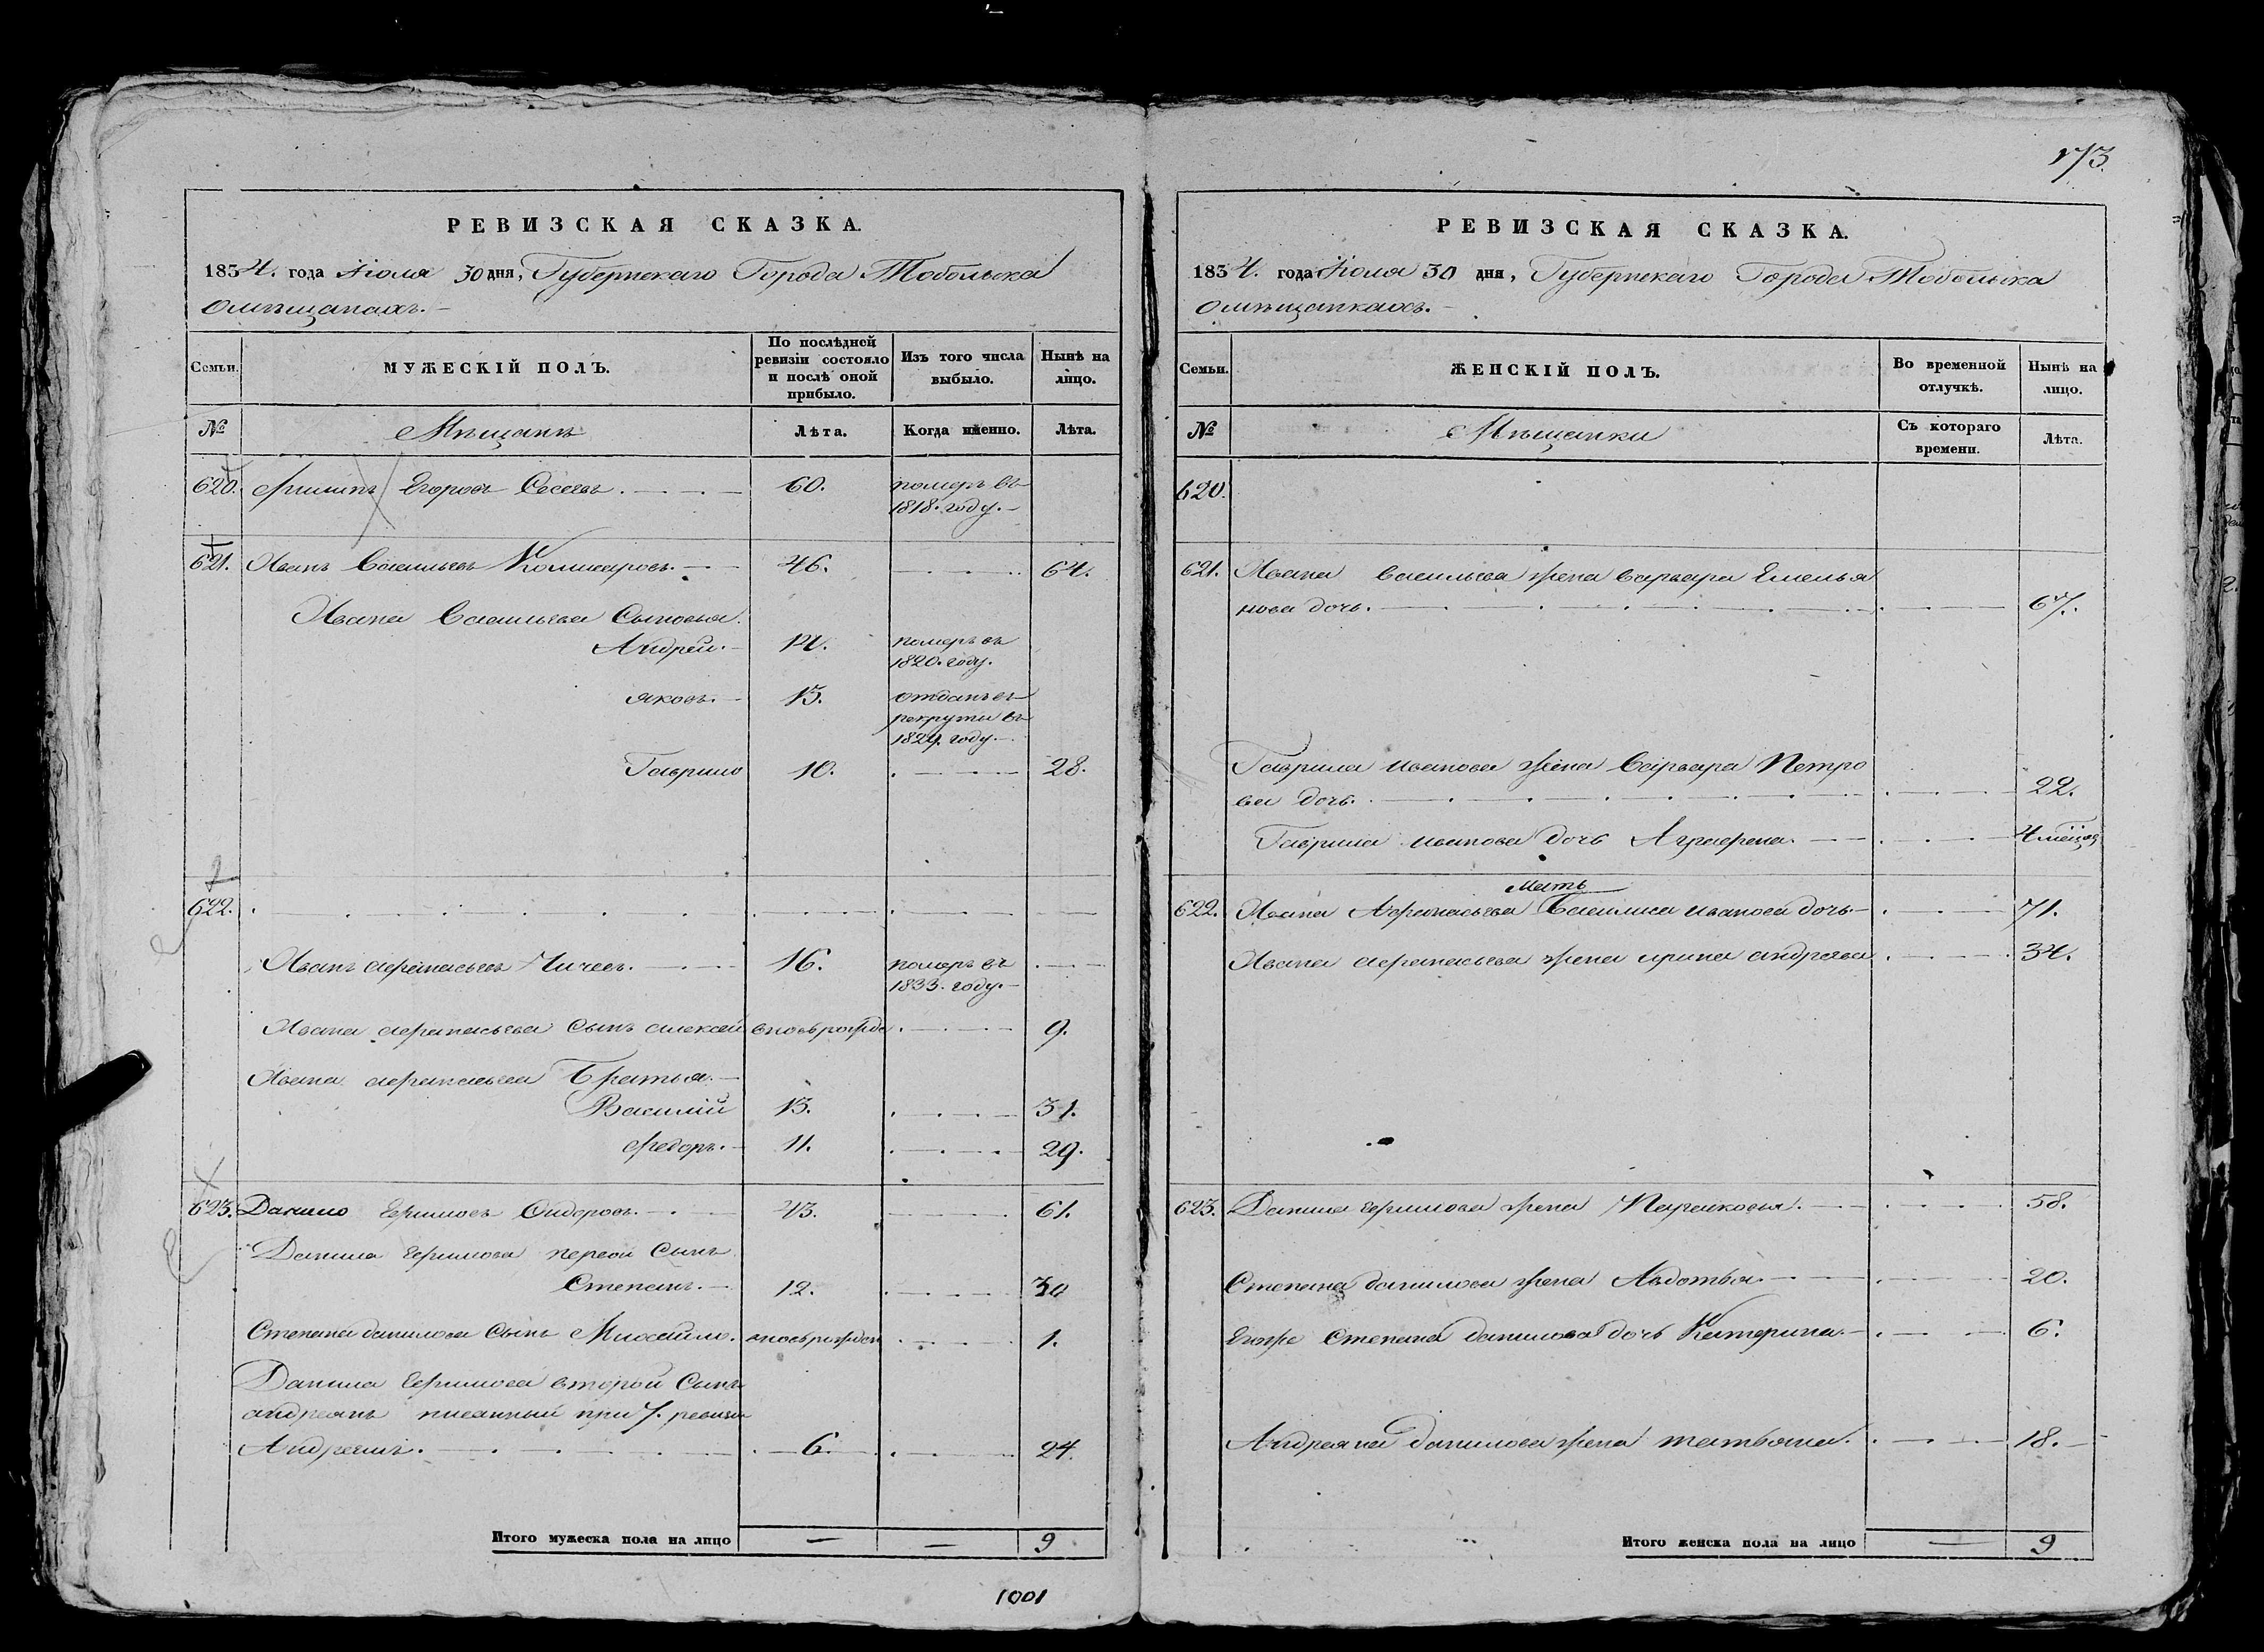 173.
РЕВИЗСКАЯ СКАЗКА.
1834. года Іюля 30 дня, Губернскаго Города Тобольска
о мѣщанахъ.
Семьи.
МУЖЕСКІЙ ПОЛЪ.
По послѣдней ревизіи состояло и послѣ оной прибыло.
Изъ того числа выбыло.
Нынѣ на лицо.
№
Мѣщанъ
Лѣта.
Когда именно.
Лѣта.
620. Филипъ Егоровъ 60. померъ въ
1818. году.
621. Иванъ Васильевъ Комисаровъ. 46. 64.
Ивана Васильева Сыновья.
Андрей. 14. померъ въ
1820. году.
Яковъ. 13. отданъ въ
рекруты въ
1829. году.
Гаврило 10. 28.
622.
Иванъ афанасьевъ Чичевъ. 16. померъ въ
1833. году.
Ивана афанасьева сынъ алексей вновь рожде 9.
Ивана афанасьева Братья.
Василій 13. 31.
Федоръ. 11. 29.
623. Данило Ефимовъ Сидоровъ. 43. 61.
Данила Ефимова первой Сынъ
Степанъ. 12. 30
Степана данилова Сынъ Михайло. вновь рожден 1.
Данила Ефимова второй Сынъ
андреянъ писанный при 7. ревизіи
6. 24.
Итого мужеска пола на лицо — — 9
1001
РЕВИЗСКАЯ СКАЗКА.
1834. года Іюля 30 дня, Губернскаго Города Тобольска
о мѣщанкахъ.
Семьи.
ЖЕНСКІЙ ПОЛЪ.
Во временной отлучкѣ.
Нынѣ на лицо.
№
Мѣщанки
Съ котораго времени.
Лѣта.
620.
621. Ивана Васильева жена варвара Емелья
нова дочь. 67.
Гаврила иванова жена Варвара Петро
ва дочь. 22.
Гаврила иванова дочь Аграфена. 4 мѣсяц
мать
622. Ивана Афанасьева Василиса иванова дочь 71.
Ивана афанасьева жена ирина андрѣева 34.
623. Данила ефимова жена Парасковья. 58.
Степана данилова жена Авдотья. 20.
Егоже Степана данилова дочь Катерина. 6.
Андреяна данилова жена татьяна. 18.
Итого женска пола на лицо — 9